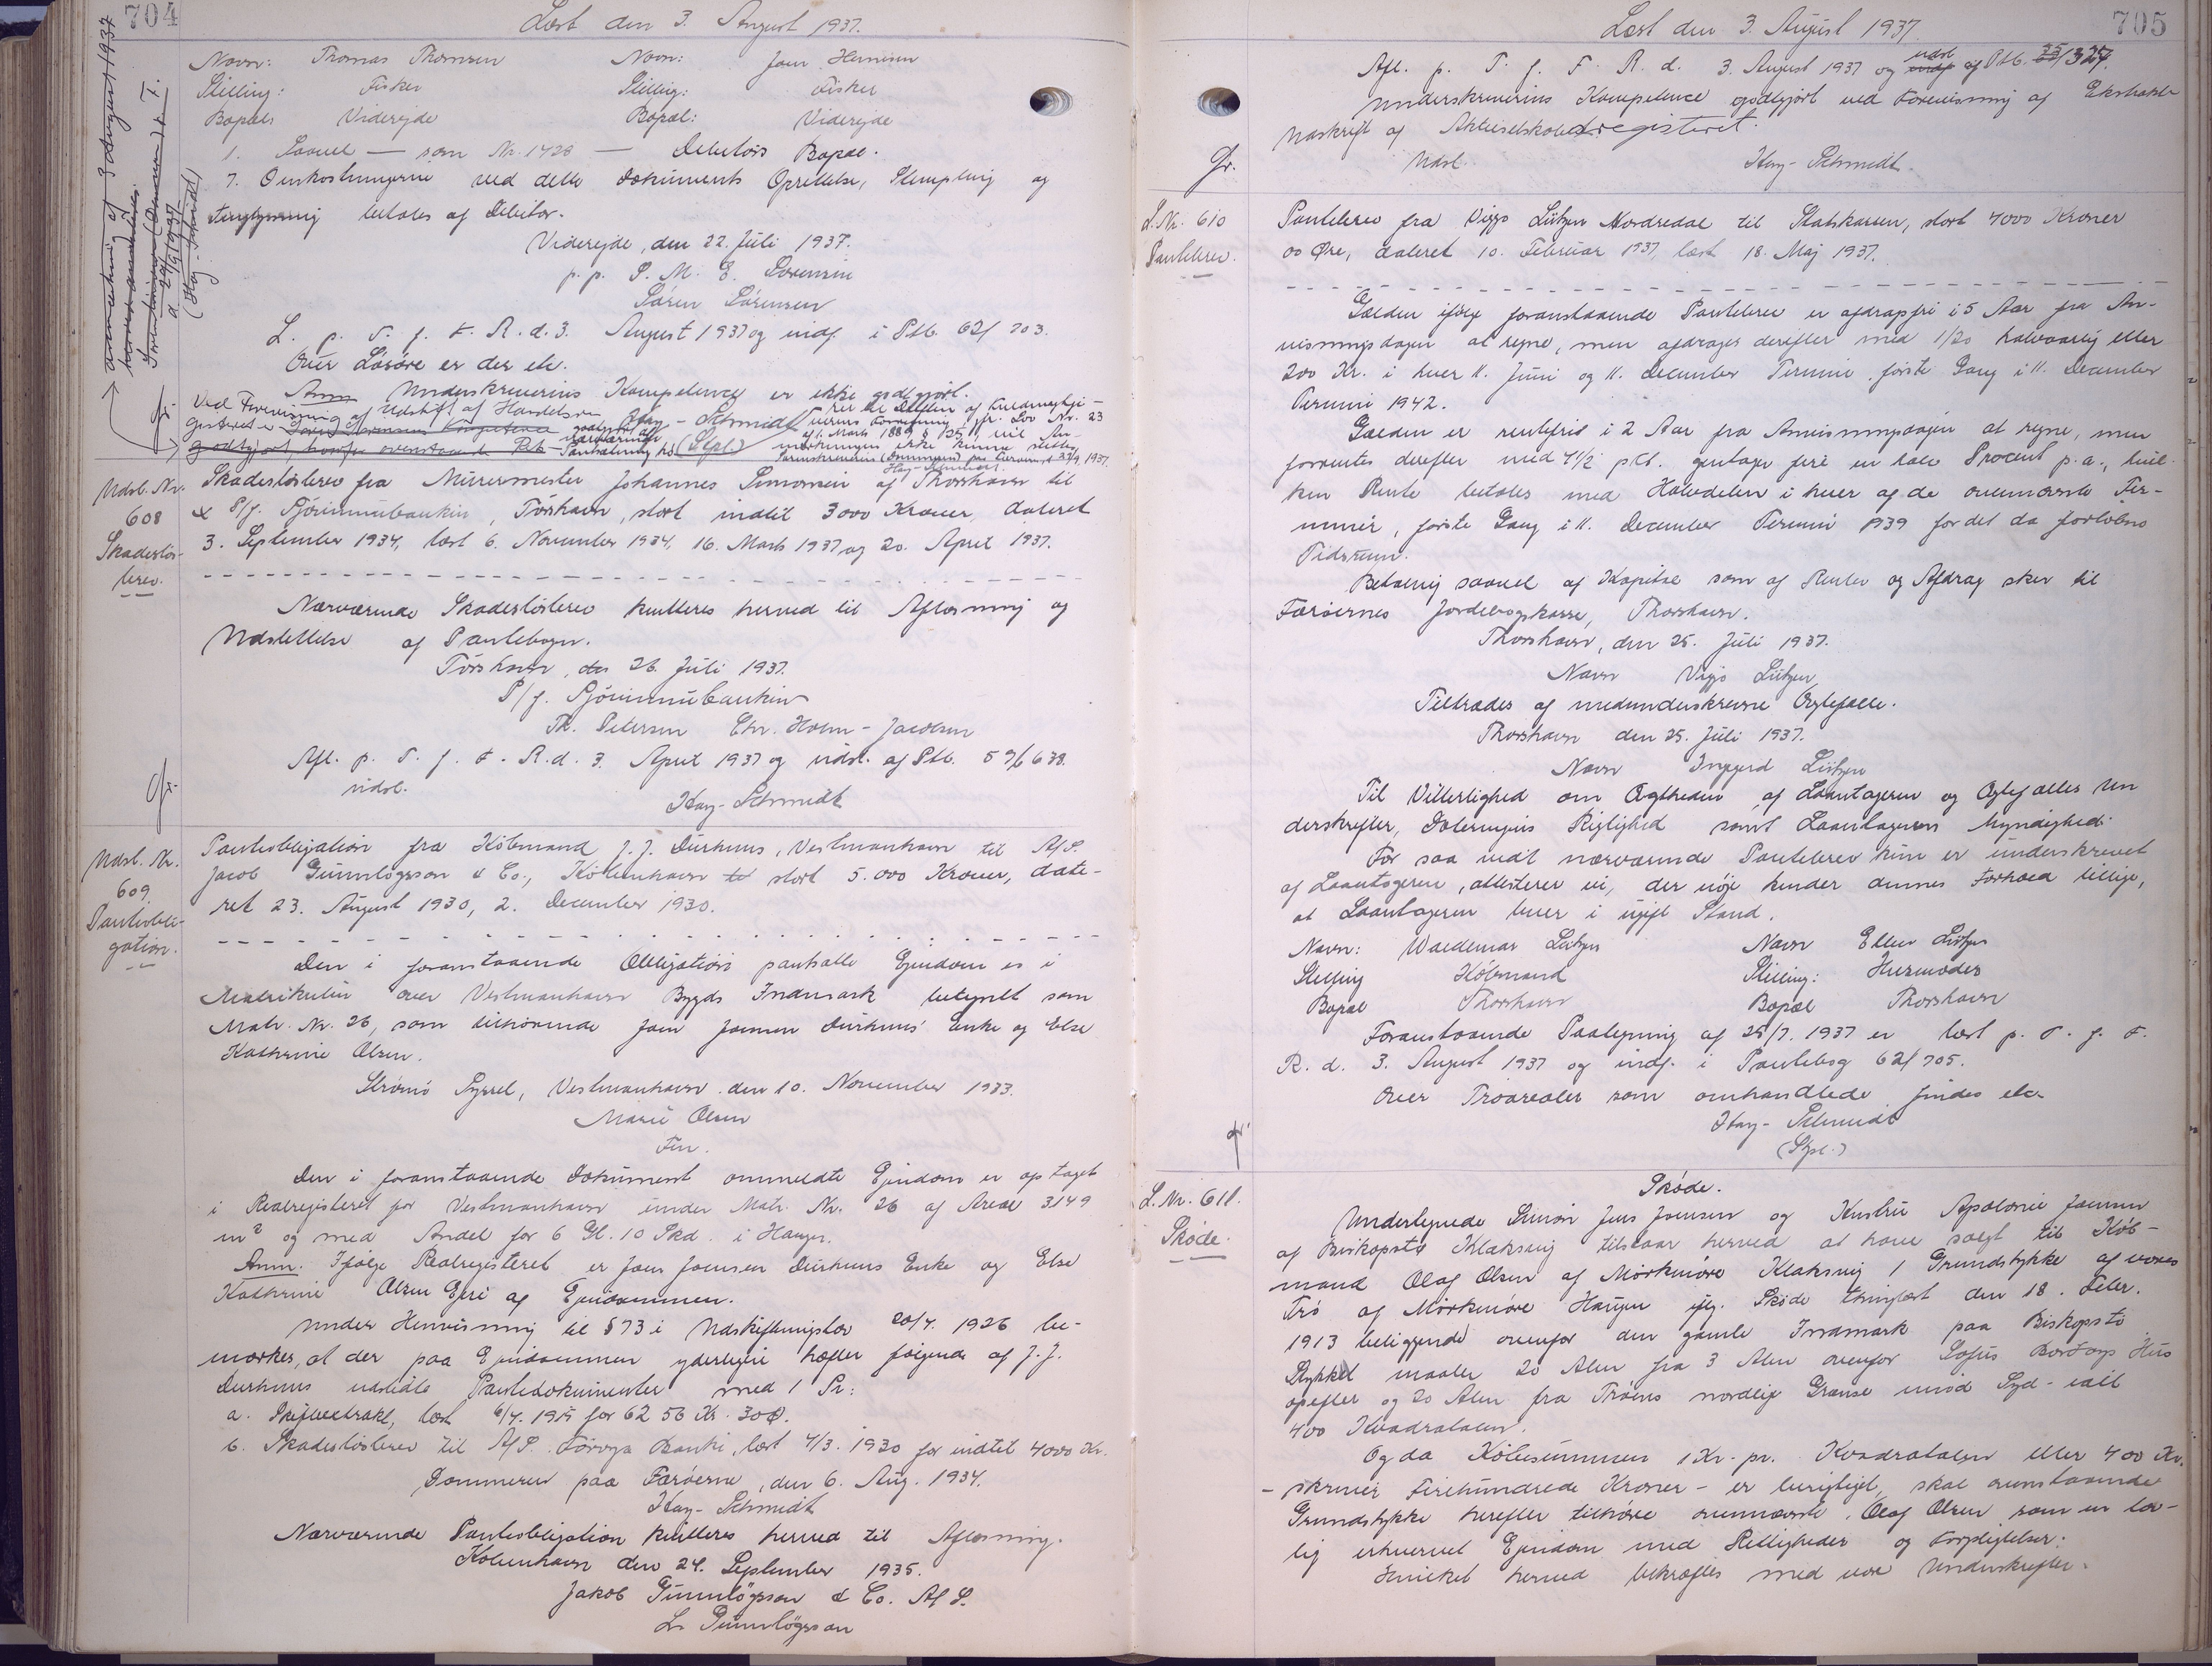 704
Læst den 3. August 1937.
Navn: Thomas Thomsen Navn: Joen Henrissen
Stilling: Fisker Stilling: Fisker
Bopæl: Viderejde Bopæl: Viderejde
1. Saavel — som Nr. 1428 — Debitors Bopæl.
7. Omkostningerne ved dette Dokuments Oprettelse, Stempling og
tinglysning betales af Debitor.
Viderejde, den 22. Juli 1937.
p. p. S. M. E. Sørensen
Sören Sörensen
L. p. T. f. F. R. d. 3. August 1937 og indf. i Ptb. 62/703.
Over Lösöre er der etc.
Anm Underskriverens Kompetence er ikke godtgjort.
Ved Forevisning af Udskrift af Handelsre-
Hay-Schmidt
(Stpl.)
Udsl. Nr.
608
Skadesløs-
brev.
Skadesløsbrev fra Murermester Johannes Simonsen af Thorshavn til
P/f. Sjóvinnubankin, Tórshavn, stort indtil 3000 Kroner, dateret
3. September 1934, læst 6. November 1934, 16. Marts 1937 og 20. April 1937.
Nærværende Skadesløsbrev kvitteres herved til Aflæsning og
Udslettelse af Pantebogen.
Tórshavn, den 26. Juli 1937.
P/f. Sjóvinnubankin
Th. Petersen Chr. Holm-Jacobsen
Afl. p. T. f. F. R. d. 3. April 1937 og udsl. af Ptb. 59/638.
udsl.
Hay-Schmidt
Udsl. Nr.
609.
Pantobli-
gation.
Pantobligation fra Købmand J. J. Durhuus, Vestmanhavn til A/S.
Jacob Gunnlögsson & Co., København stort 5.000 Kroner, date-
ret 23. August 1930, 2. December 1930.
Den i foranstaaende Obligation pantsatte Ejendom er i
Matrikulen over Vestmanhavn Bygds Indmark betegnet som
Matr. Nr. 26, som tilhørende Joen Joensen Durhuus' Enke og Else
Kathrine Olsen.
Strømø Syssel, Vestmanhavn den 10. November 1933.
Marie Olsen
Fm.
Den i foranstaaende Dokument ommeldte Ejendom er optaget
i Realregisteret for Vestmanhavn under Matr. Nr. 26 af Areal 3149
m² og med Andel for 6 Gl. 10 Skd. i Haugen.
Anm. Ifølge Realregisteret er Joen Joensen Durhuus Enke og Else
Kathrine Olsen Ejere af Ejendommen.
Under Henvisning til § 73 i Udskiftningslov 20/4. 1926 be-
mærkes, at der paa Ejendommen yderligere hæfter følgende af J. J.
Durhuus udstedte Pantedokumenter med 1 Pr:
a. Skifteextrakt, læst 6/7. 1915 for 6256 Kr. 30 Ø.
b. Skadesløsbrev til A/S. Føroya Banki, læst 4/3. 1930 for indtil 4000 Kr.
Dommeren paa Færøerne, den 6. Aug. 1934.
Hay-Schmidt
Nærværende Pantobligation kvitteres herved til Aflæsning.
København den 24. September 1935.
Jakob Gunnlögsson & Co. A/S.
L. Gunnlögsson
705
Læst den 3. August 1937.
Afl. p. T. f. F. R. d. 3. August 1937 og udsl af Ptb. 55/325.
Underskriverens Kompetence godtgjort ved Forevisning af Ekstrakt-
udskrift af Aktieselskabsregisteret.
Udsl. Hay-Schmidt
L. Nr. 610
Pantebrev.
Pantebrev fra Viggo Lützen Nordredal til Statskassen, stort 4000 Kroner
00 Øre, dateret 10. Februar 1937, læst 18. Maj 1937.
Gælden ifølge foranstaaende Pantebrev er afdragsfri i 5 Aar fra An-
visningsdagen at regne, men afdrages derefter med 1/20 halvaarlig eller
200 Kr. i hver 11. Juni og 11. December Termin første Gang i 11. December
Termin 1942.
Gælden er rentefri i 2 Aar fra Anvisningsdagen at regne, men
forrentes derefter med 4 1/2 pCt. gentager fire en halv Procent p. a., hvil-
ken Rente betales med Halvdelen i hver af de ovennævnte Ter-
miner, første Gang i 11. December Termin 1939 for det da forløbne
Tidsrum.
Betaling saavel af Kapital som af Renter og Afdrag sker til
Færøernes Jordebogskasse, Thorshavn.
Thorshavn, den 25. Juli 1937.
Navn Viggo Lützen
Tiltrædes af medunderskrevne Ægtefælle.
Thorshavn den 25. Juli 1937.
Navn Ingegerd Lützen
Til Vitterlighed om Ægtheden af Laantageren og Ægtefælles Un
derskrifter, Dateringens Rigtighed samt Laantagerens Myndighed.
For saa vidt nærværende Pantebrev kun er underskrevet
af Laantageren, attesterer vi, der nøje kender dennes Forhold tillige,
at Laantageren lever i ugift Stand.
Navn: Waldemar Lützen Navn Ellen Lützen
Stilling Købmand Stilling: Husmoder
Bopæl Thorshavn Bopæl Thorshavn
Foranstaaende Paategning af 25/7. 1937 er læst p. T. f. F.
R. d. 3. August 1937 og indf. i Pantebog 62/705.
Over Trøarealer som omhandlede findes etc.
Hay-Schmidt
(Stpl.)
L. Nr. 611.
Skøde.
Skøde.
Undertegnede Simon Jens Joensen og Kristine Apolonie Joensen
af Biskopstø Klaksvig tilstaar herved at have solgt til Køb-
mand Olaf Olsen af Mørkenøre Klaksvig 1 Grundstykke af vores
Trø af Mørkenøre Haugen iflg. Skøde tinglæst den 18. Febr.
1913 beliggende ovenfor den gamle Indmark paa Biskopstø
Stykket maaler 20 Alen fra 3 Alen ovenfor Sofus Hus
opefter og 20 Alen fra Trøens nordlige Grænse imod Syd - ialt
400 Kvadratalen.
Og da Købesummen 1 Kr. pr. Kvadratalen eller 400 Kr.
- skriver Firehundrede Kroner - er berigtiget, skal ovenstaaende
Grundstykke herefter tilhøre ovennævnte Olaf Olsen som en lov-
lig erhvervet Ejendom med Rettigheder og Forpligtelser.
Hvilket herved bekræftes med vore Underskrifter.